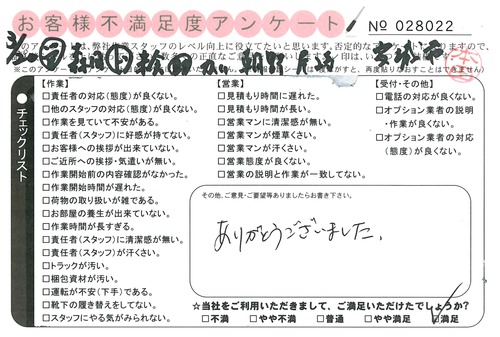 お客様不満足度アンケート
No 028022
チェックリスト
【作業】
□責任者の対応(態度)が良くない。
□他のスタッフの対応(態度)が良くない。
□作業を見ていて不安がある。
□責任者(スタッフ)に好感が持てない。
□お客様への挨拶が出来ていない。
□ご近所への挨拶・気遣いが無い。
□作業開始前の内容確認がなかった。
□作業開始時間が遅れた。
□荷物の取り扱いが雑である。
□お部屋の養生が出来ていない。
□作業時間が長すぎる。
□責任者(スタッフ)に清潔感が無い。
□責任者(スタッフ)が汗くさい。
□トラックが汚い。
□梱包資材が汚い。
□運転が不安(下手)である。
□靴下の履き替えをしてない。
□スタッフにやる気がみられない。
【営業】
□見積もり時間に遅れた。
□見積もり時間が長い。
□営業マンに清潔感が無い。
□営業マンが煙草くさい。
□営業マンが汗くさい。
□営業態度が良くない。
□営業の説明と作業が一致してない。
【受付・その他】
□電話の対応が良くない。
□オプション業者の説明
・作業が良くない。
□オプション業者の対応
(態度)が良くない。
その他、ご意見・ご要望等ありましたらお書き下さい。
ありがとうございました。
☆当社をご利用いただきまして、ご満足いただけたでしょうか?
□不満 □やや不満 □普通 □やや満足 □満足